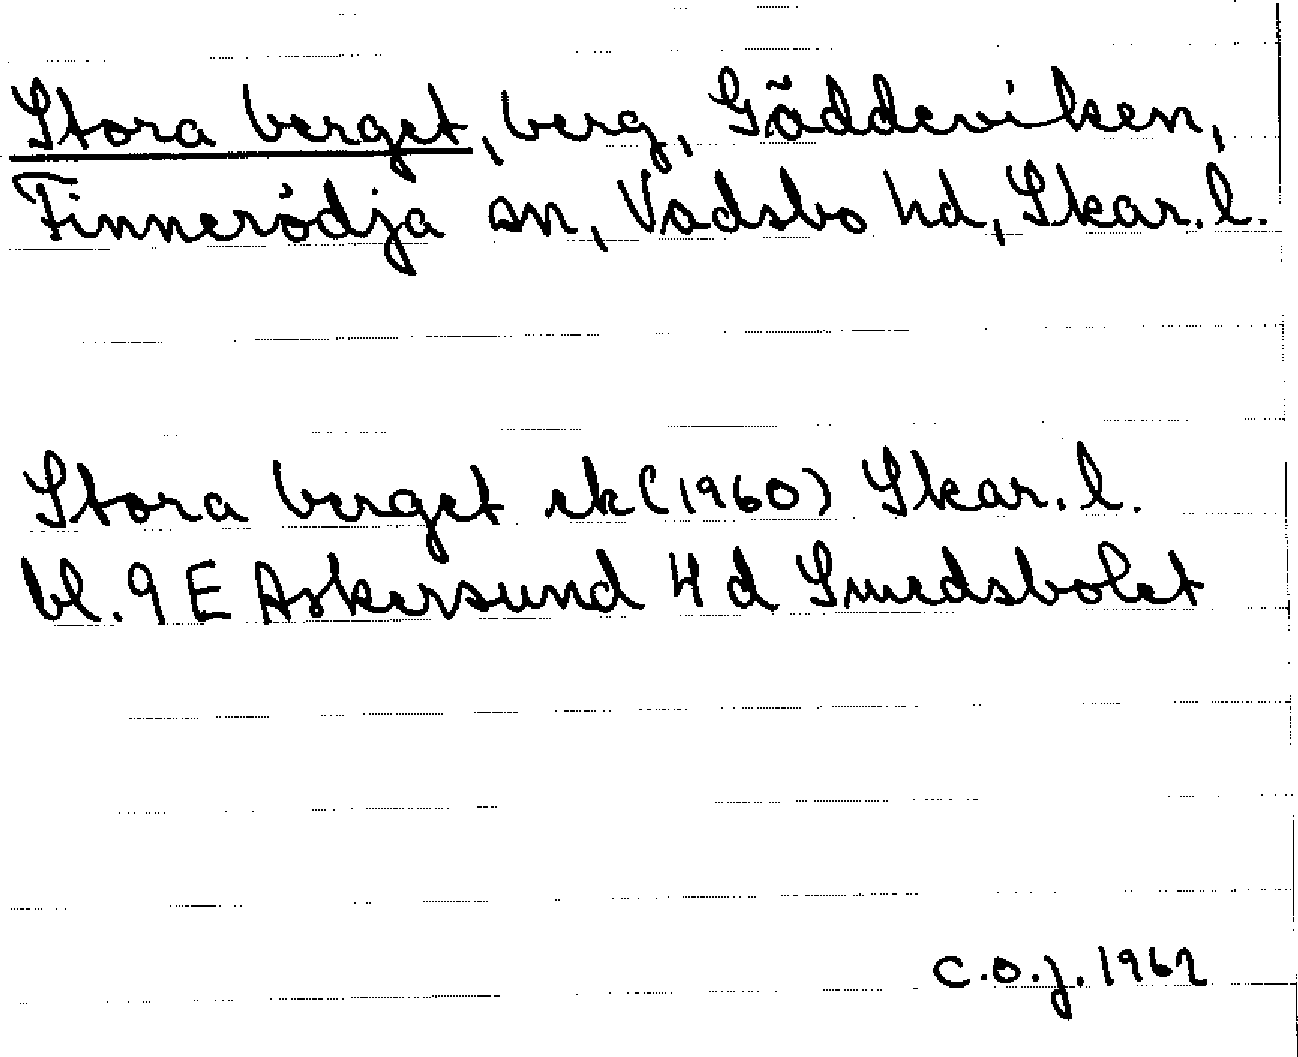 Stora berget, berg, Gäddeviken,
Finnerödja sn, Vadsbo hd, Skar. l.
Stora berget ek (1960) Skar. l.
bl. 9 E Askersund 4 d Smedsbolet
C.O.J. 1962